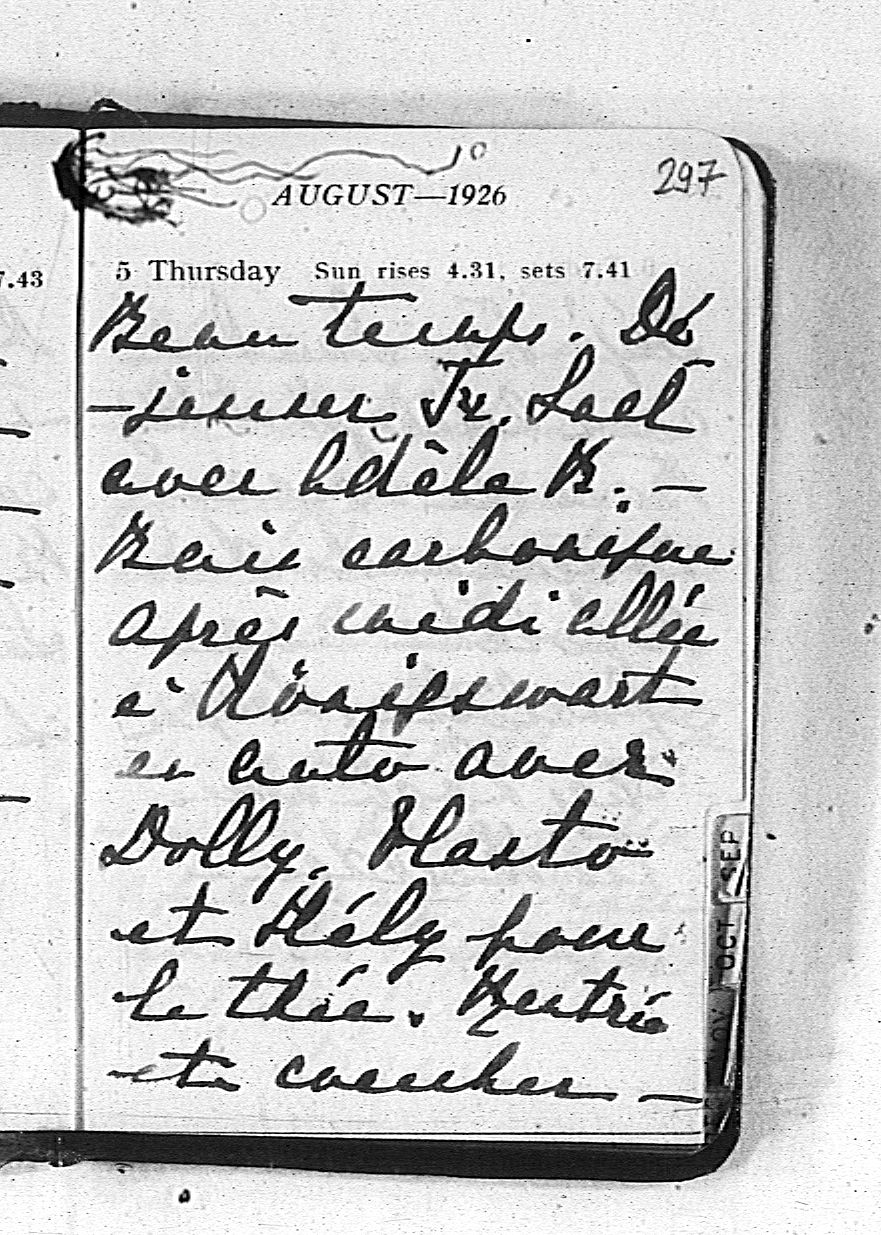 297
AUGUST—1926
7.43
5 Thursday Sun rises 4.31, sets 7.41
Beau temps. Dé
-jeuner Fr.
avec Adèle K. —
Bain carbonique
après midi allée
à Königswart
en auto avec
Dolly, Vlasto
et Hély pour
le thé. Rentrée
et coucher —
SEP
OCT
NOV